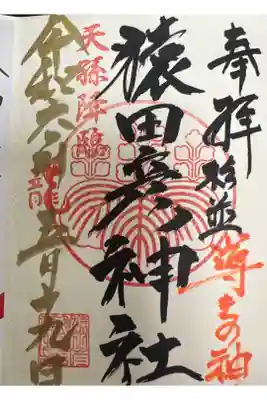 奉拝 杉並 導きの神
猿田彦神社
天孫降臨
令和六年五月十九日